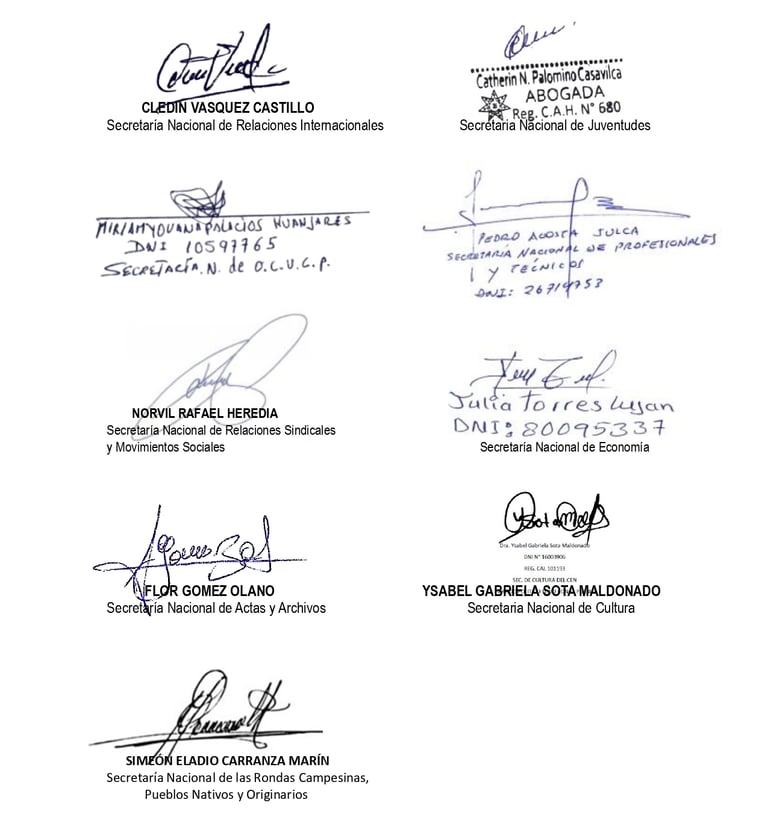 CLEDIN VASQUEZ CASTILLO
Secretaría Nacional de Relaciones Internacionales
Catherin N. Palomino Casavilca
ABOGADA
Reg. C.A.H. N° 680
Secretaria Nacional de Juventudes
MIRIAM YOUANA PALACIOS HUANJARES
DNI 10597765
SECRETACÍA. N. de O.C.U.C.P.
PEDRO ACOSTA JULCA
SECRETARIA NACIONAL DE PROFESIONALES
Y TECNICOS
DNI: 26719753
NORVIL RAFAEL HEREDIA
Secretaría Nacional de Relaciones Sindicales
y Movimientos Sociales
Julia Torres Lujan
DNI: 80095337
Secretaría Nacional de Economía
FLOR GOMEZ OLANO
Secretaría Nacional de Actas y Archivos
Dra. Ysabel Gabriela Sota Maldonado
DNI N° 16003906
REG. CAL 101193
SEC. DE CULTURA DEL CEN
YSABEL GABRIELA SOTA MALDONADO
Secretaria Nacional de Cultura
SIMEÓN ELADIO CARRANZA MARÍN
Secretaría Nacional de las Rondas Campesinas,
Pueblos Nativos y Originarios